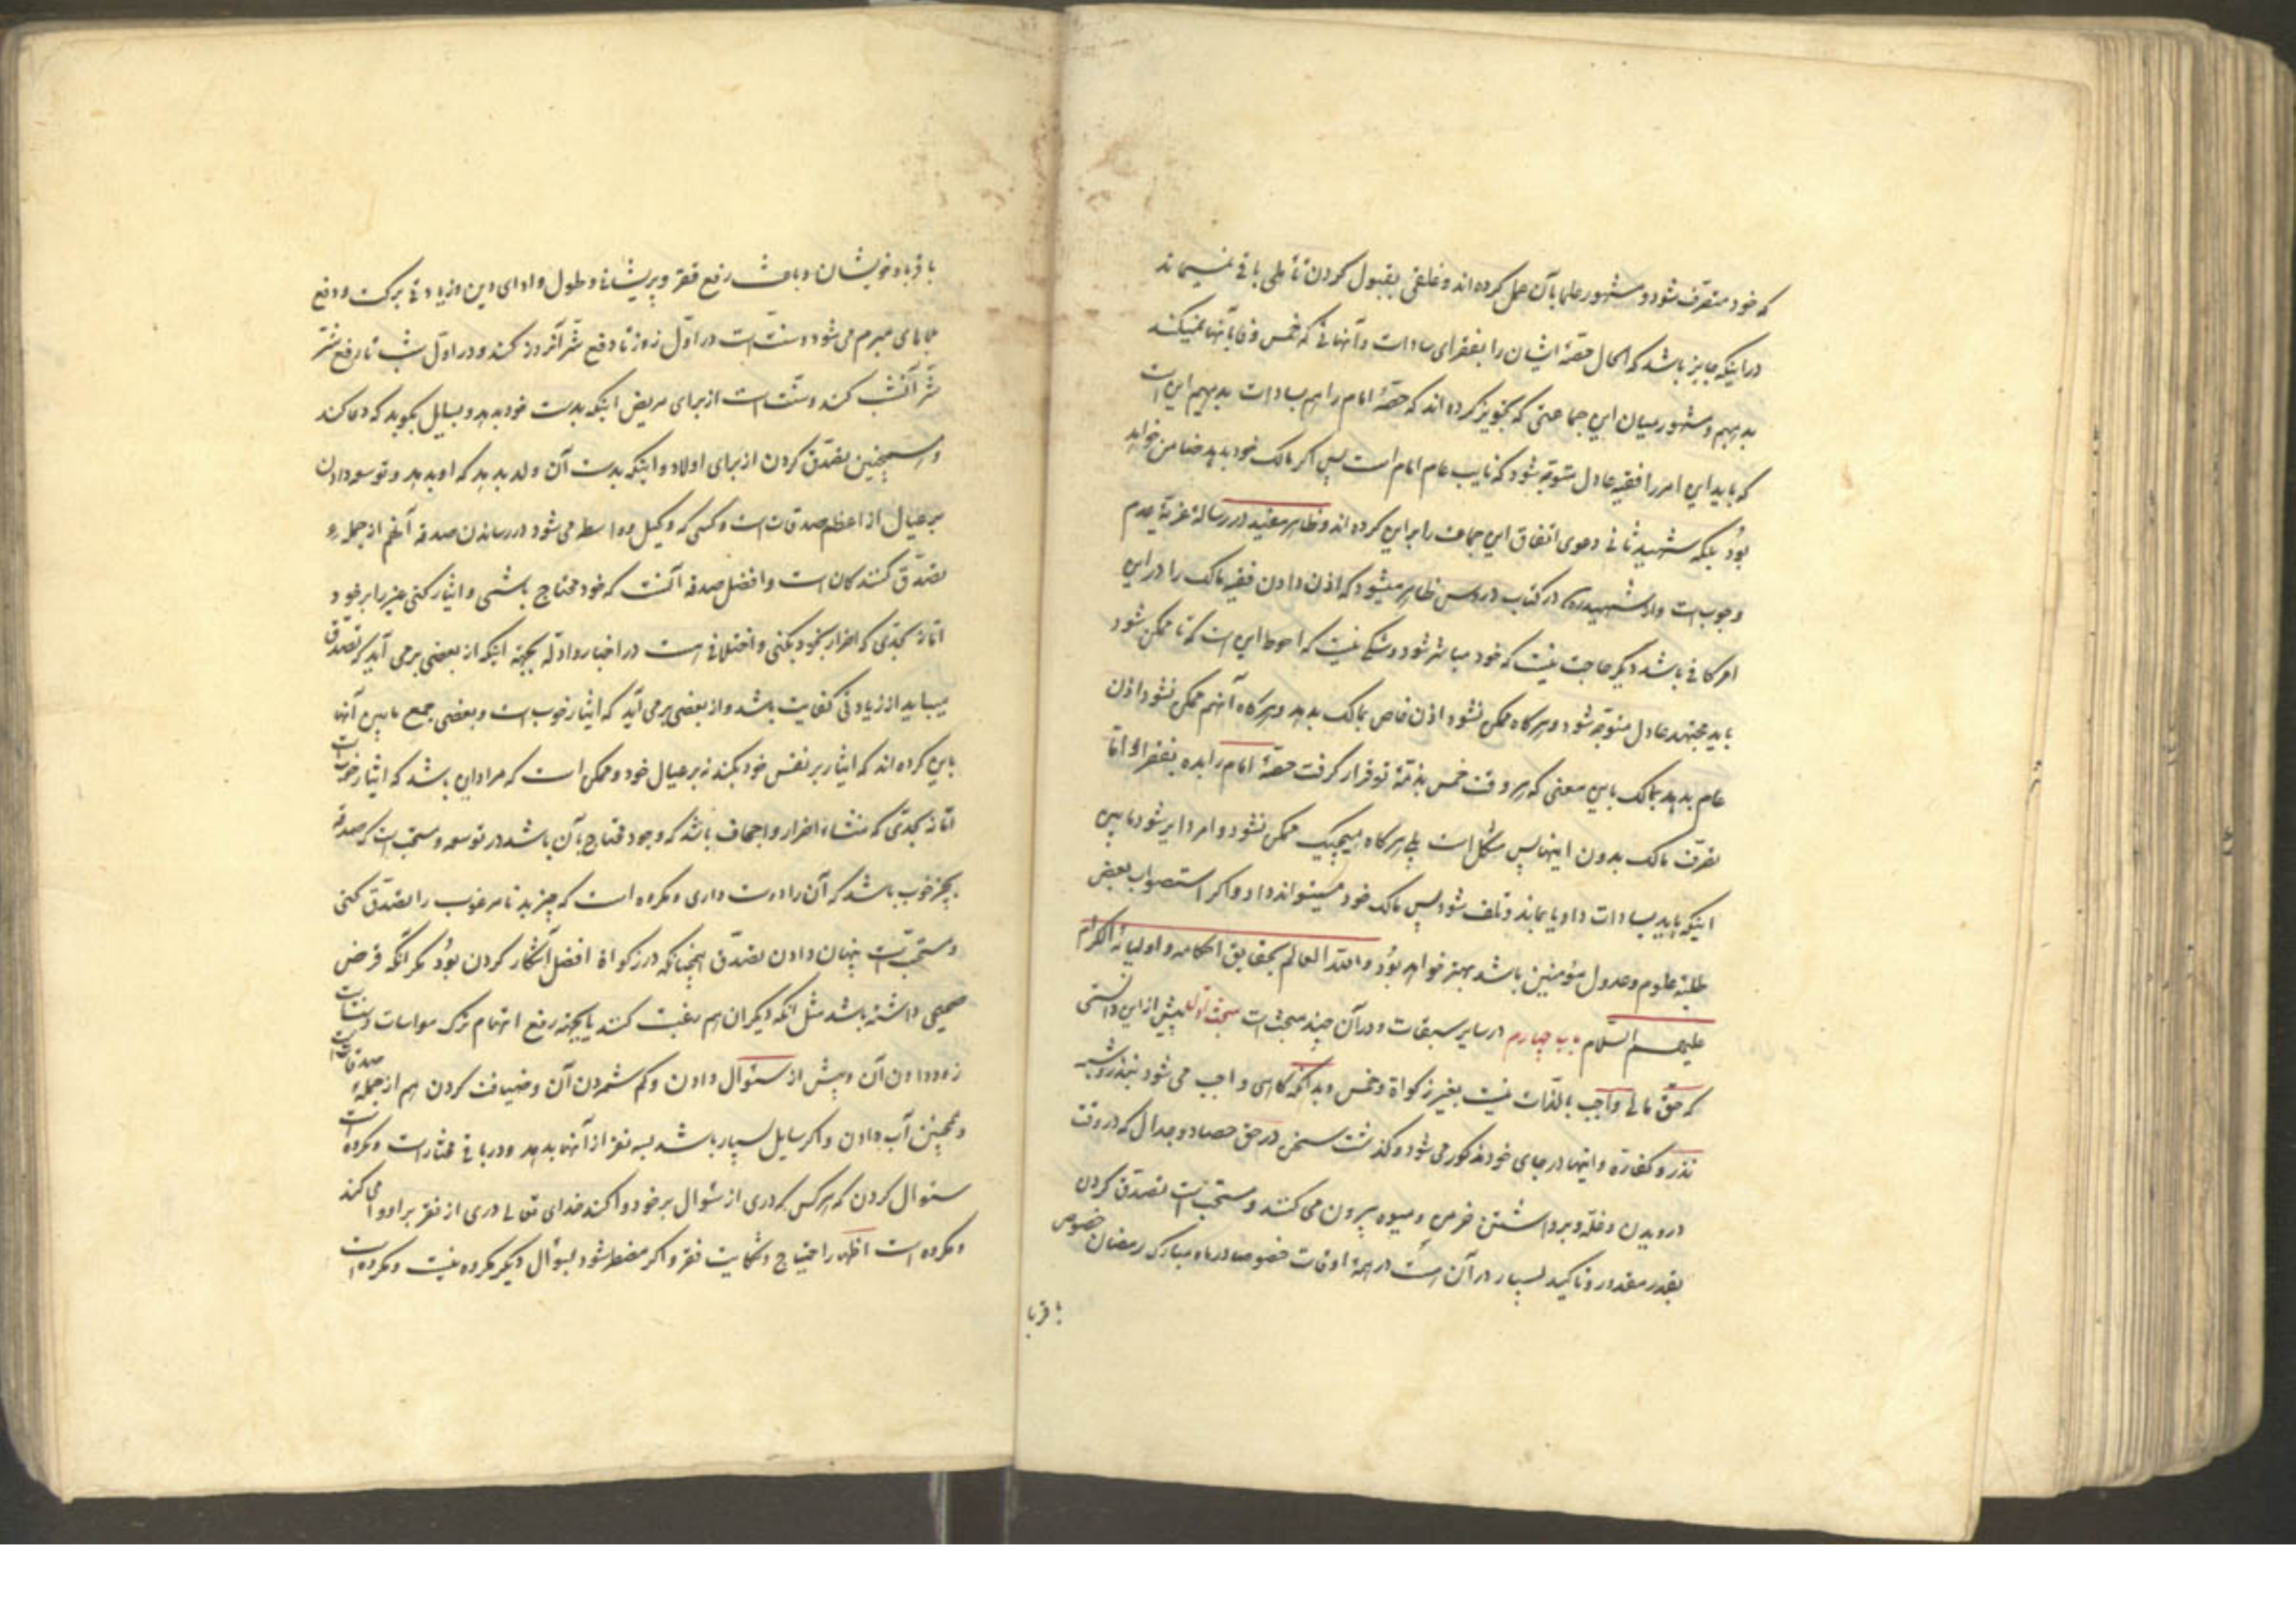 که خود متصرف شود و مشهور علما بآن عمل کرده اند و خلقی بقبول کردن تأملی باقی نمیماند
در اینکه جایز باشد که الحال حصهٔ ایشان را بفقرای سادات و آنهائی که خمس وفا بآنها نمیکند
بدهیم و مشهور میان این جماعتی که تجویز کرده اند که حصهٔ امام را هم بسادات بدهیم این است
که باید این امر را فقیه عادل متوجه شود که نایب عام امام است پس اگر مالک خود بدهد ضامن خواهد
بود بلکه شهید ثانی دعوی اتفاق این جماعت را بر این کرده اند و ظاهر مفید در رسالهٔ غریه عدم
وجوبست و از شهید ره در کتاب دروس ظاهر میشود که اذن دادن فقیه مالک را در این
امر کافی باشد دیگر حاجت نیست که خود مباشر شود و شکی نیست که احوط این است که تا ممکن شود
باید مجتهد عادل متوجه شود و هر گاه ممکن نشود اذن خاص بمالک بدهد و هر گاه آنهم ممکن نشود اذن
عام بدهد بمالک باین معنی که هر وقت خمس بذمهٔ تو قرار گرفت حصهٔ امام را بده بفقرا و اما
تصرف مالک بدون اینها پس مشکل است بلی هر گاه هیچیک ممکن نشود و امر دایر شود مابین
اینکه باید بسادات داد یا بماند و تلف شود پس مالک خود میتواند داد و اگر استصواب بعض
طلبهٔ علوم و عدول مؤمنین باشد بهتر خواهد بود و الله العالم بحقایق احکامه و اولیائه الکرام
علیهم السلام باب چهارم در سایر ... و در آن چند مبحث است مبحث اول پیش از این دانستی
که حق مالی واجب بالذات نیست بغیر زکواة و خمس و بدانکه گاهی واجب می شود بنذر و شبه
نذر و کفاره و اینها در جای خود مذکور می شود و گذشت سخن در حق حصاد و جدال که در وقت
درویدن و غله و برداشتن خرمن و میوه بیرون می کنند و مستحب است تصدق کردن
بقدر مقدور و تاکید بسیار در آن است در همهٔ اوقات خصوصا در ماه مبارک رمضان خصوص
باقربا
باقربا و خویشان و باعث رفع فقر و پریشانی و طول و ادای دین و زیادتی برکت و دفع
بلاهای مبرم می شود و سنت است در اول روز تا دفع شر آنروز کند و در اول شب تا رفع شر
شر آنشب کند و سنت است از برای مریض اینکه بدست خود بدهد و بسایل بگوید که دعا کند
و همچنین تصدق کردن از برای اولاد و اینکه بدست آن ولد بدهد که او بدهد و توسعه دادن
بر عیال از اعظم صدقات است و کسی که وکیل و واسطه می شود در رساندن صدقه آنهم از جملهٔ
تصدق کنندگان است و افضل صدقه آنست که خود محتاج باشی و ایثار کنی غیر را بر خود
اما نه بحدی که اضرار بخود بکنی و اختلافی است در اخبار و ادله بجهة اینکه از بعضی برمی آید که تصدق
میباید از زیادتی کفایت باشد و از بعضی برمی آید که ایثار خوبست و بعضی جمع مابین آنها
باین کرده اند که ایثار بر نفس خود بکند نه بر عیال خود و ممکن است که مراد این باشد که ایثار خوبست
اما نه بحدی که منشاء اضرار و اجحاف باشد که وجود محتاج بآن باشد در توسعه و مستحبست که صدقه
بچیز خوب باشد که آن را دوست داری و مکروه است که چیز بد نامرغوب را تصدق کنی
و مستحبّست پنهان دادن تصدق همچنانکه در زکواة افضل آشکار کردن بود مگر آنکه غرض
صحیحی داشته باشد مثل آنکه دیگران هم رغبت کنند یا بجهة رفع اتهام ترک مواسات و سنت است
زود دادن آن و پیش از سئوال دادن و کم شمردن آن و ضیافت کردن هم از جملهٔ صدقات است
و همچنین آب دادن و اگر سایل بسیار باشد بسه نفر از آنها بدهد و در باقی مختار است و مکروه است
سئوال کردن که هر کس که دری از سئوال بر خود وا کند خدای تعالی دری از فقر بر او وا می کند
و مکروه است اظهار احتیاج و شکایت فقر و اگر مضطر شود بسؤال دیگر مکروه نیست و مکروه است